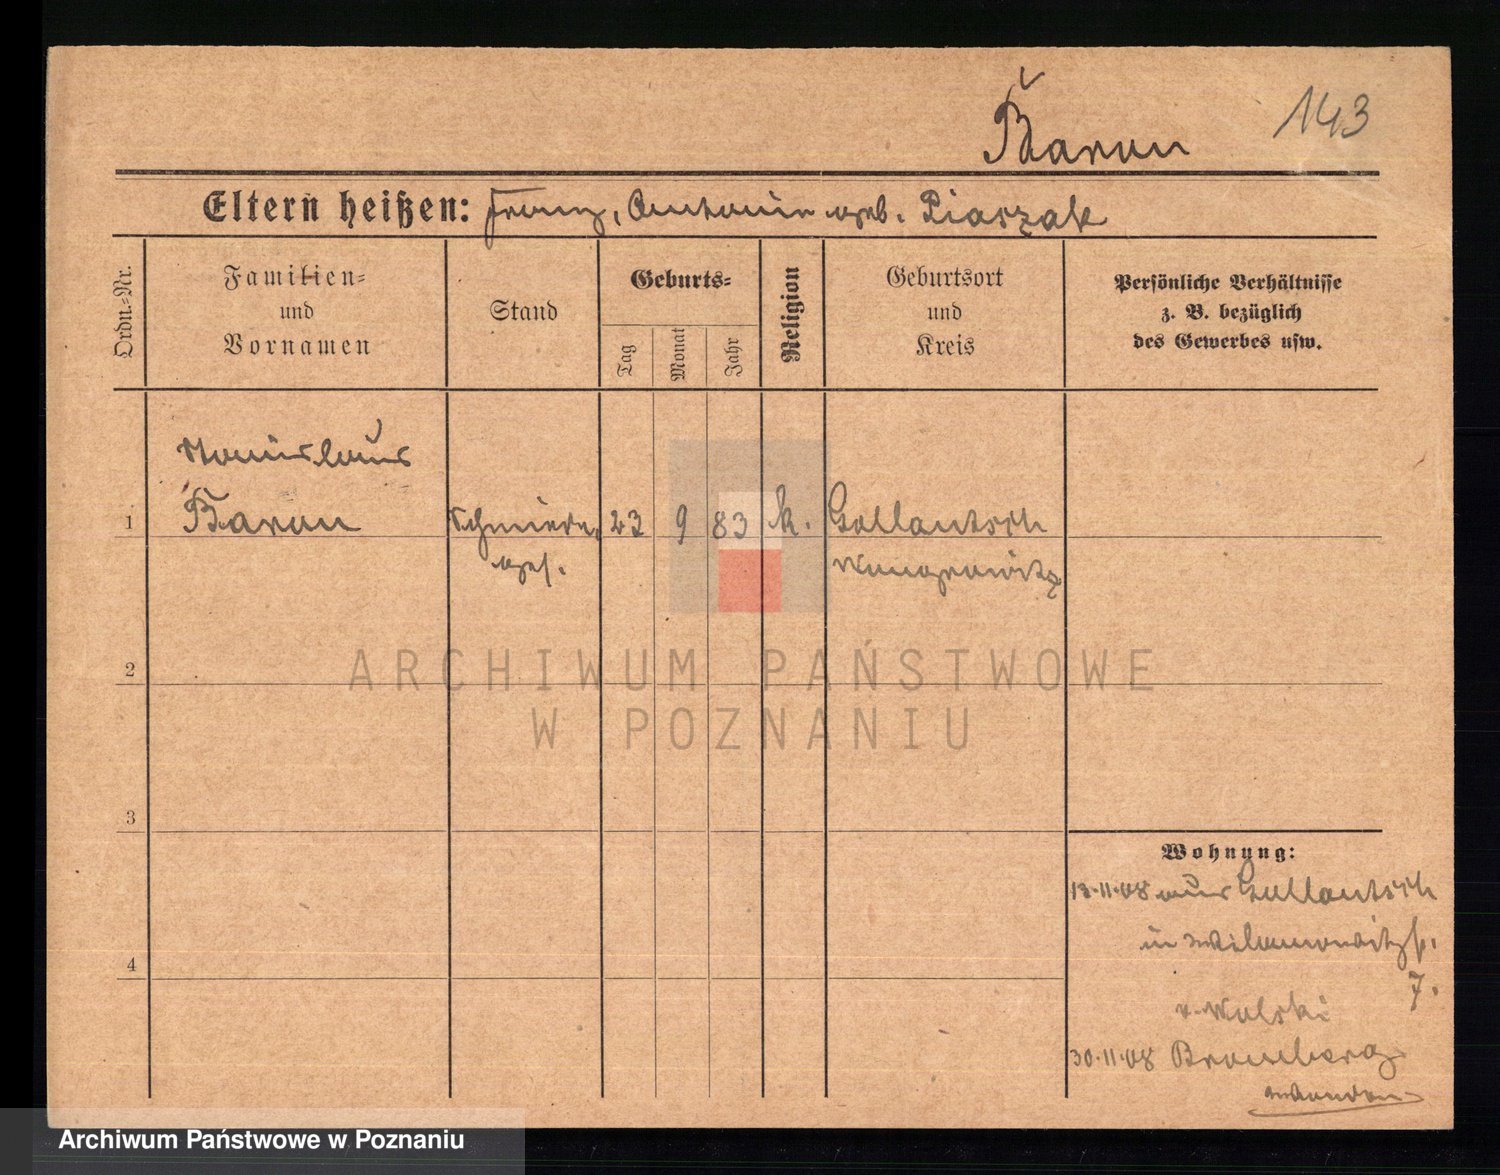 143
Baron
Eltern heißen: Franz, Antonie geb. Piaszak
Ordn.-Nr.
Familien-
und
Vornamen
Stand
Geburts-
Tag
Monat
Jahr
Religion
Geburtsort
und
Kreis
Persönliche Verhältnisse
z. B. bezüglich
des Gewerbes usw.
Stanislaus
1 Baron Schmiede- 23 9 83 k. Gollantsch
ges. Wongrowitz
2
ARCHIWUM PAŃSTWOWE
W POZNANIU
3
Wohnung:
13.11.08 aus Gollantsch
in
7.
v. Wolski
4
30.11.08 Bromberg
Archiwum Państwowe w Poznaniu